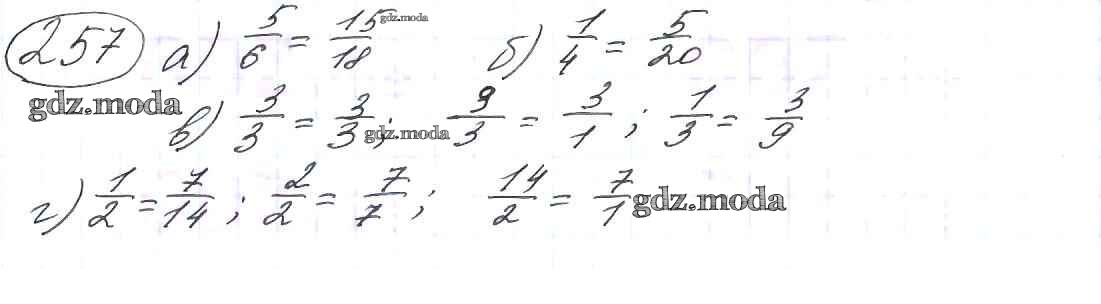 257 а) 5/6 = 15/18 gdz.moda б) 1/4 = 5/20
gdz.moda в) 3/3 = 3/3; gdz.moda 9/3 = 3/1; 1/3 = 3/9
г) 1/2 = 7/14; 2/2 = 7/7; 14/2 = 7/1 gdz.moda